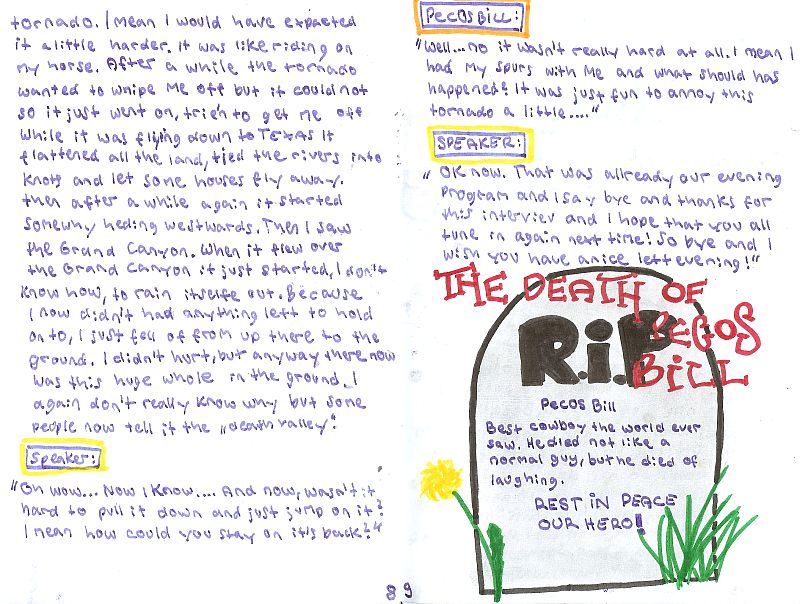 tornado. I mean I would have expacted
it a little harder. It was like riding on
my horse. After a while the tornado
wanted to whipe me off but it could not
so it just went on, trie'n to get me off
while it was flying down to TEXAS It
flattened all the land, tied the rivers into
knots and let some houses fly away.
then after a while again it started
somewhy heding westwards. Then I saw
the Grand Canyon. When it flew over
the Grand Canyon it just started, I don't
know how, to rain itselfe out. Because
I now didn't had anything left to hold
on to, I just fell of from up there to the
ground. I didn't hurt, but anyway there now
was this huge whole in the ground. I
again don't really know why but some
people now tell it the „death valley".
Speaker:
"Oh wow... Now I know.... And now, wasn't it
hard to pull it down and just jump on it?
I mean how could you stay on it's back?"
8
PECOS BILL:
"Well...no it wasn't really hard at all. I mean I
had my spurs with me and what should has
happened? It was just fun to annoy this
tornado a little...."
SPEAKER:
"OK now. That was allready our evening
program and I say bye and thanks for
this interview and I hope that you all
tune in again next time! So bye and I
wish you have a nice left evening!"
THE DEATH OF
PECOS
BILL
R.i.P
Pecos Bill
Best cowboy the world ever
saw. He died not like a
normal guy, but he died of
laughing.
REST IN PEACE
OUR HERO!
9